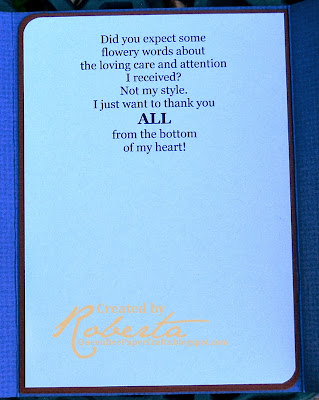 Did you expect some
flowery words about
the loving care and attention
I received?
Not my style.
I just want to thank you
ALL
from the bottom
of my heart!
Created by
Roberta